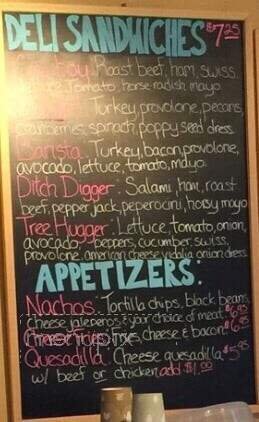 DELI SANDWICHES $7.25
Roast beef, ham, swiss,
lettuce, tomato, horse radish mayo
Turkey, provolone, pecans,
cranberries, spinach, poppy seed dress.
Barista: Turkey, bacon, provolone,
avocado, lettuce, tomato, mayo
Ditch Digger: Salami, ham, roast
beef, pepper jack, peperocini, horsy mayo
Tree Hugger: Lettuce, tomato, onion,
avocado, peppers, cucumber, swiss,
provolone, american cheese, vidalia onion dress.
APPETIZERS:
Nachos: Tortilla chips, black beans,
cheese, jalepeños & your choice of meat $6.95
Cheese Fries, cheese & bacon $6.95
Quesadilla: Cheese quesadilla $5.95
w/ beef or chicken add $1.00